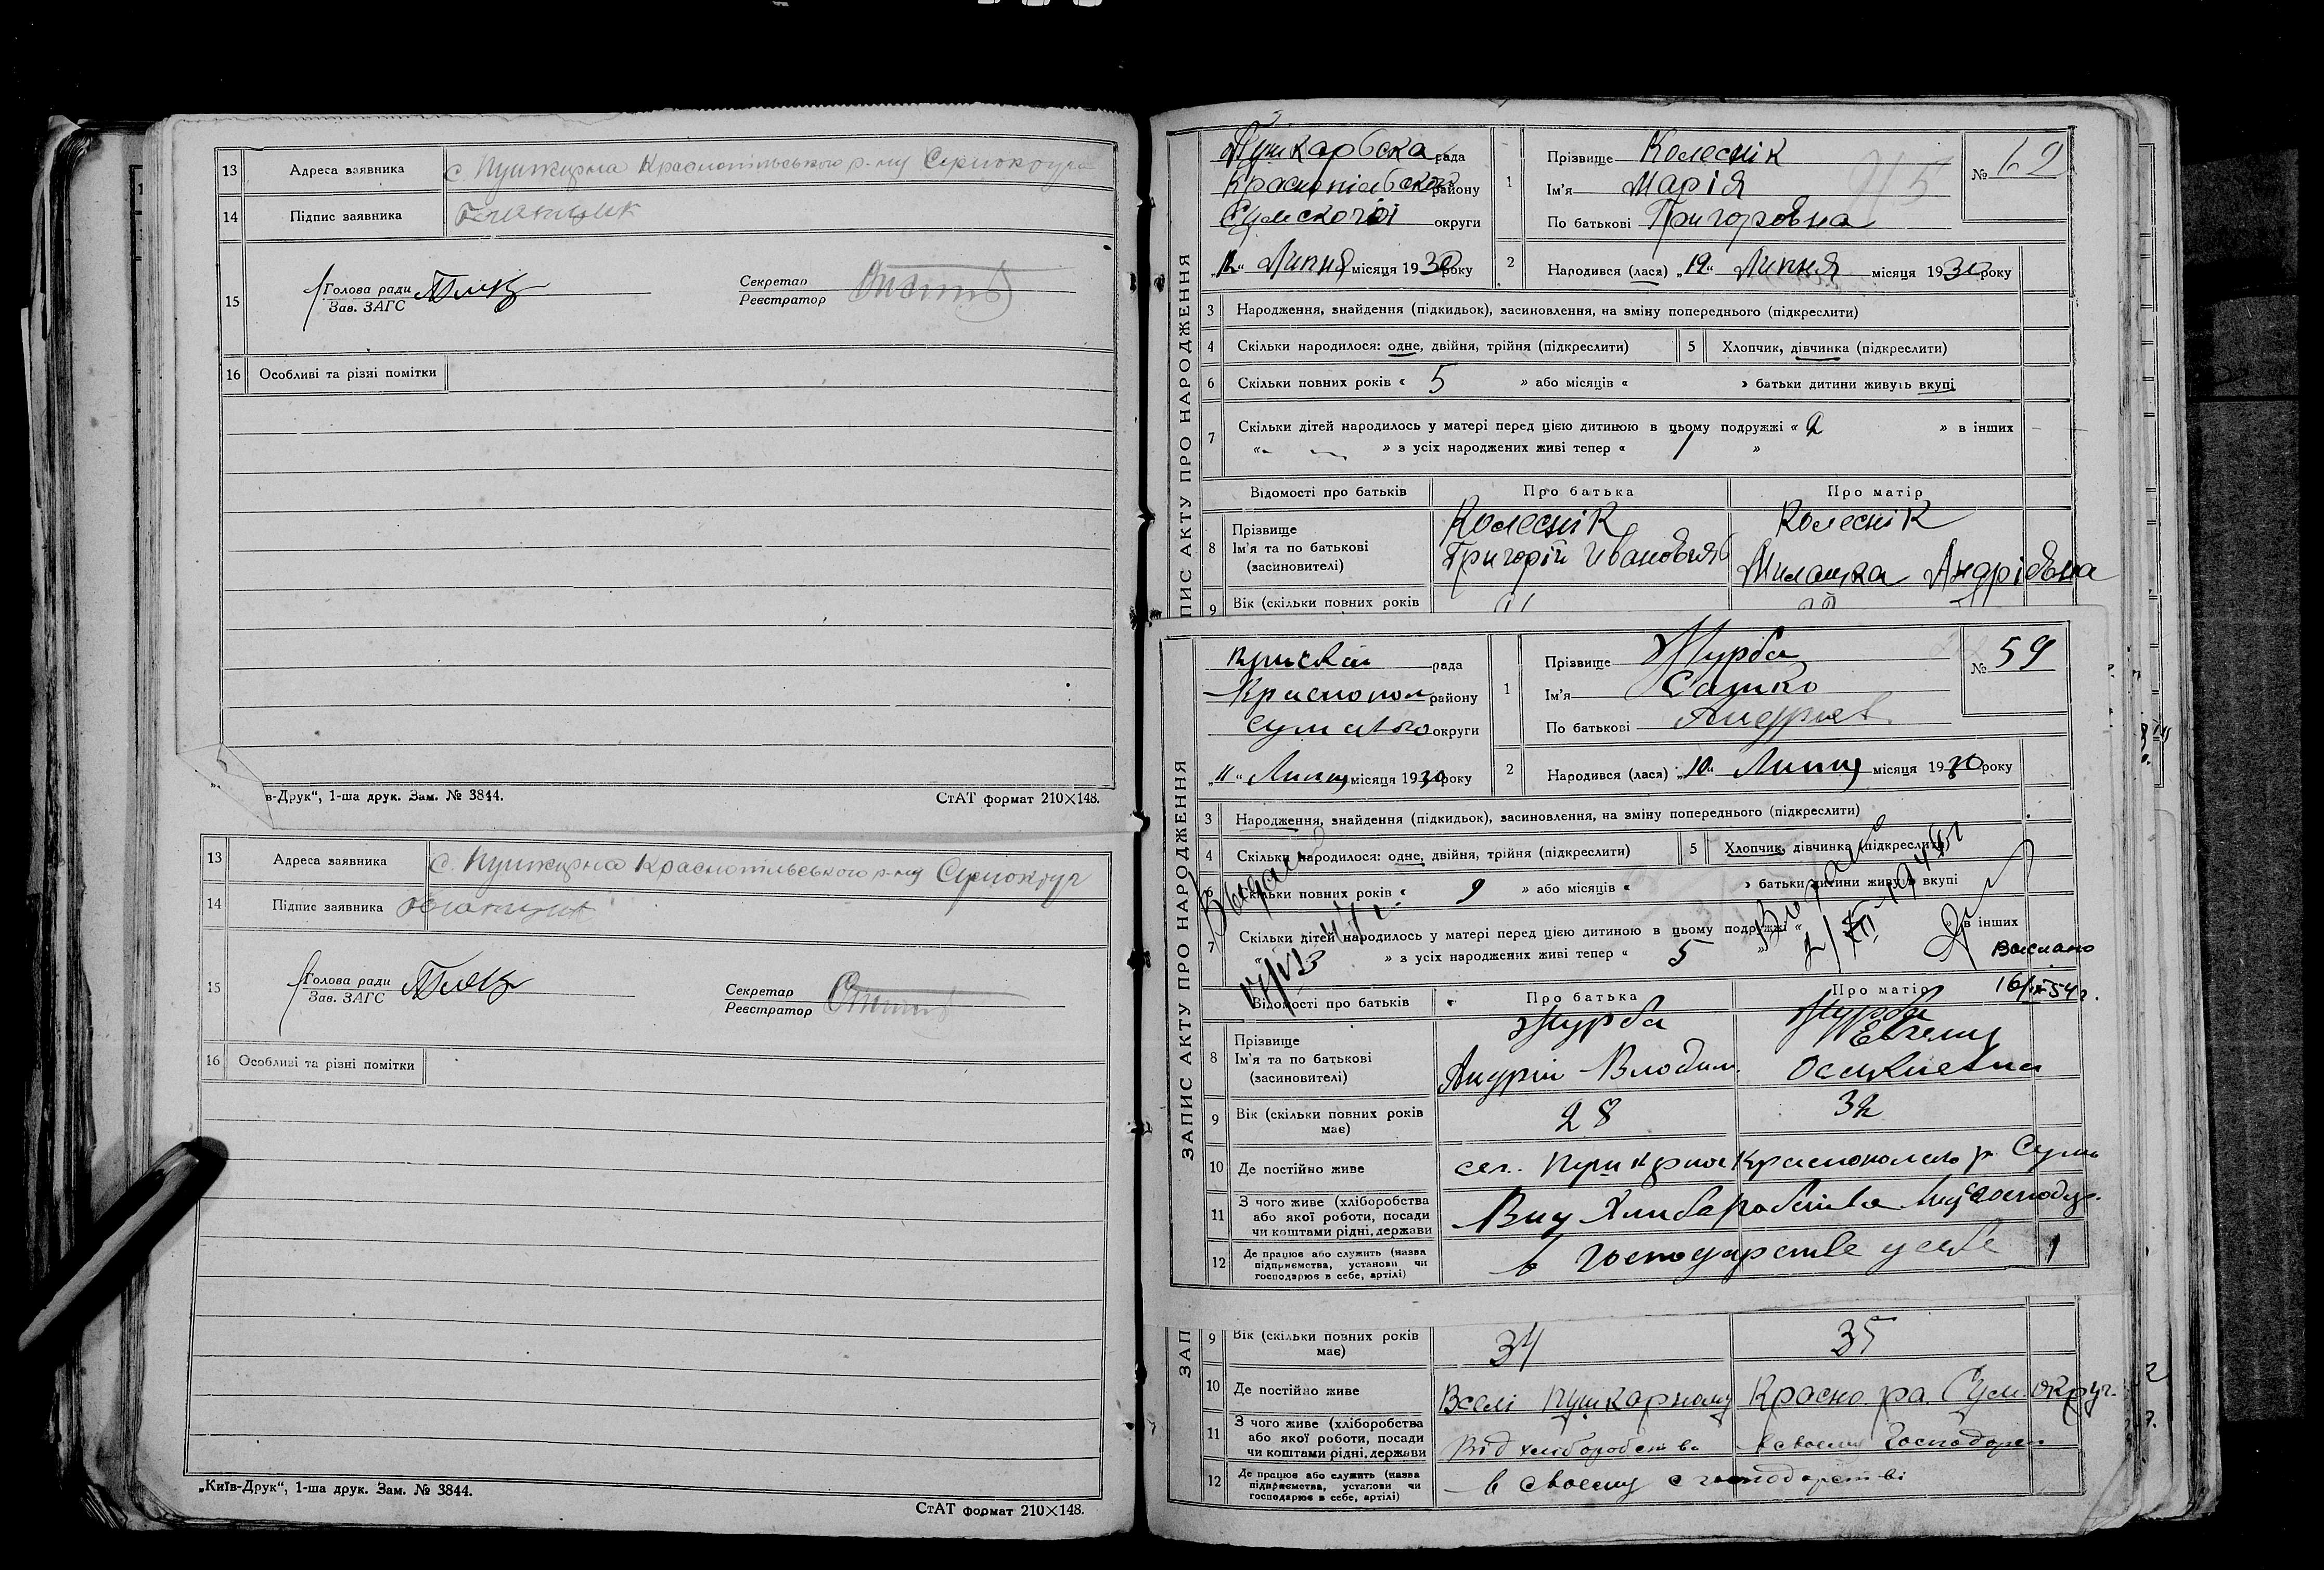 13 Адреса заявника с. Пушкарна Краснопільського р-ну Сумокруг
14 Підпис заявника
15 Голова ради Секретар
Зав. ЗАГС Реєстратор
16 Особливі та різні помітки
в-Друк“, 1-ша друк. Зам. № 3844. СтАТ формат 210×148.
13 Адреса заявника с. Пушкарна Краснопільського р-ну Сумокруг
14 Підпис заявника
15 Голова ради Секретар
Зав. ЗАГС Реєстратор
16 Особливі та різні помітки
„Київ-Друк“, 1-ша друк. Зам. № 3844.
СтАТ формат 210×148.
ПИС АКТУ ПРО НАРОДЖЕННЯ
Пушкарвска рада
району
округи
„12“ Липня місяця 1930 року
1 Прізвище Колеснік
Ім'я Марія
По батькові Григоровна
№ 62
2 Народився (лася) „19“ Липня місяця 1930 року
3 Народження, знайдення (підкидьок), засиновлення, на зміну попереднього (підкреслити)
4 Скільки народилося: одне, двійня, трійня (підкреслити) 5 Хлопчик, дівчинка (підкреслити)
6 Скільки повних років « 5 » або місяців « » батьки дитини живуть вкупі
7 Скільки дітей народилось у матері перед цією дитиною в цьому подружжі « 2 » в інших
«- » з усіх народжених живі тепер « 1 »
Відомості про батьків Про батька Про матір
8 Прізвище Колеснік Колеснік
Ім'я та по батькові Григорій Ивановичь Милашка Андріевна
(засиновителі)
9 Вік (скільки повних років
ЗАПИС АКТУ ПРО НАРОДЖЕННЯ
рада
Краснопол району
округи
„11“ Липця місяця 1930 року
1 Прізвище Журба
Ім'я Сашко
По батькові Андриев
№ 59
2 Народився (лася) „10“ Липця місяця 1930 року
3 Народження, знайдення (підкидьок), засиновлення, на зміну попереднього (підкреслити)
4 Скільки народилося: одне, двійня, трійня (підкреслити) 5 Хлопчик, дівчинка (підкреслити)
6 Скільки повних років « 9 » або місяців « » батьки дитини живуть вкупі
7 Скільки дітей народилось у матері перед цією дитиною в цьому подружжі « » в інших
» з усіх народжених живі тепер « 5 »
Відомості про батьків Про батька Про матір
8 Прізвище Журба Журба
Ім'я та по батькові Андрий Володим.
(засиновителі)
9 Вік (скільки повних років 28 32
має)
10 Де постійно живе
11 З чого живе (хліборобства
або якої роботи, посади
чи коштами рідні, держави
12 Де працює або служить (назва в господарстве у себе 1
підприємства, установи чи
господарює в себе, артілі)
ЗАП
9 Вік (скільки повних років 34 35
має)
10 Де постійно живе Вселі Пушкарному Красно. ра. Сум. округ.
11 З чого живе (хліборобства
або якої роботи, посади Від хліборобства
чи коштами рідні, держави
12 Де працює або служить (назва в своему господарстві
підприємства, установи чи
господарює в себе, артілі)